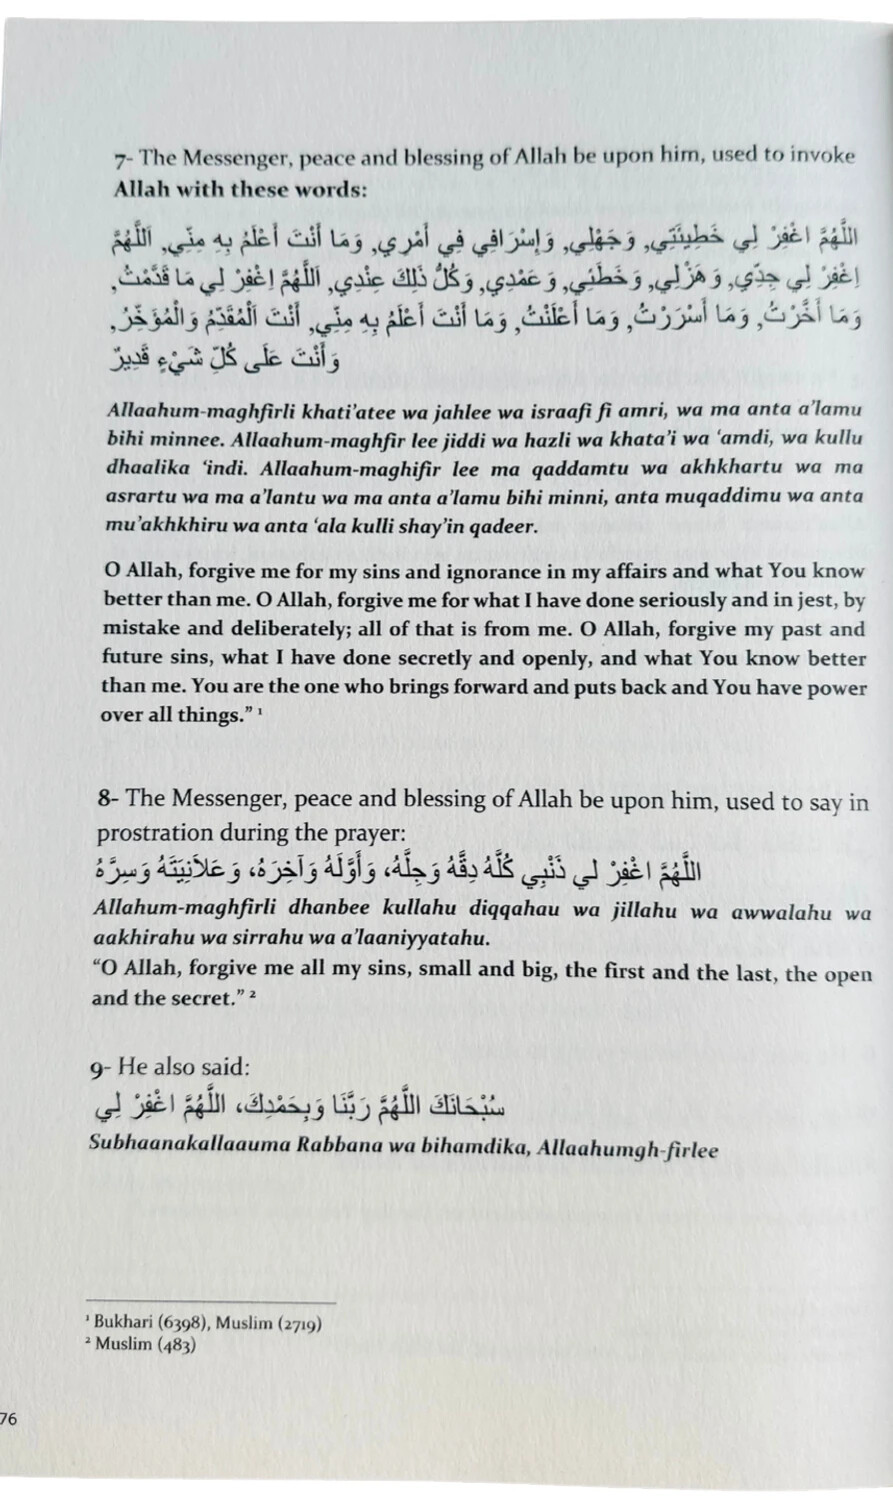 7- The Messenger, peace and blessing of Allah be upon him, used to invoke
Allah with these words:
اللَّهُمَّ اغْفِرْ لِي خَطِيئَتِي, وَجَهْلِي, وَإِسْرَافِي فِي أَمْرِي, وَمَا أَنْتَ أَعْلَمُ بِهِ مِنِّي, اَللَّهُمَّ
اِغْفِرْ لِي جِدِّي, وَهَزْلِي, وَخَطَئِي, وَعَمْدِي, وَكُلُّ ذَلِكَ عِنْدِي, اَللَّهُمَّ اِغْفِرْ لِي مَا قَدَّمْتُ,
وَمَا أَخَّرْتُ, وَمَا أَسْرَرْتُ, وَمَا أَعْلَنْتُ, وَمَا أَنْتَ أَعْلَمُ بِهِ مِنِّي, أَنْتَ اَلْمُقَدِّمُ وَالْمُؤَخِّرُ,
وَأَنْتَ عَلَى كُلِّ شَيْءٍ قَدِيرٌ
Allaahum-maghfirli khati'atee wa jahlee wa israafi fi amri, wa ma anta a'lamu
bihi minnee. Allaahum-maghfir lee jiddi wa hazli wa khata'i wa 'amdi, wa kullu
dhaalika 'indi. Allaahum-maghifir lee ma qaddamtu wa akhkhartu wa ma
asrartu wa ma a'lantu wa ma anta a'lamu bihi minni, anta muqaddimu wa anta
mu'akhkhiru wa anta 'ala kulli shay'in qadeer.
O Allah, forgive me for my sins and ignorance in my affairs and what You know
better than me. O Allah, forgive me for what I have done seriously and in jest, by
mistake and deliberately; all of that is from me. O Allah, forgive my past and
future sins, what I have done secretly and openly, and what You know better
than me. You are the one who brings forward and puts back and You have power
over all things." ¹
8- The Messenger, peace and blessing of Allah be upon him, used to say in
prostration during the prayer:
اللَّهُمَّ اغْفِرْ لِي ذَنْبِي كُلَّهُ دِقَّهُ وَجِلَّهُ، وَأَوَّلَهُ وَآخِرَهُ، وَعَلاَنِيَتَهُ وَسِرَّهُ
Allahum-maghfirli dhanbee kullahu diqqahau wa jillahu wa awwalahu wa
aakhirahu wa sirrahu wa a'laaniyyatahu.
"O Allah, forgive me all my sins, small and big, the first and the last, the open
and the secret." ²
9- He also said:
سُبْحَانَكَ اللَّهُمَّ رَبَّنَا وَبِحَمْدِكَ، اللَّهُمَّ اغْفِرْ لِي
Subhaanakallaauma Rabbana wa bihamdika, Allaahumgh-firlee
¹ Bukhari (6398), Muslim (2719)
² Muslim (483)
76